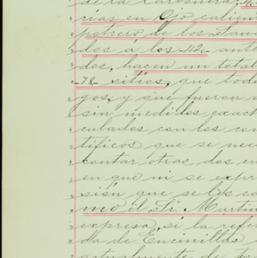 de la Carbonera,
rias en Ojo calien
potrero de los Llan
dos a los 42 ante
dos, hacen un total
72 sitios, que toda
gos, y que fueron
sin medidas exac
culados con los co
tíficos que se nec
contar otros dos en
en que ni se expr
sión que se les co
mo el Sr. Martin
expresa, si la refe
da de Encinillas